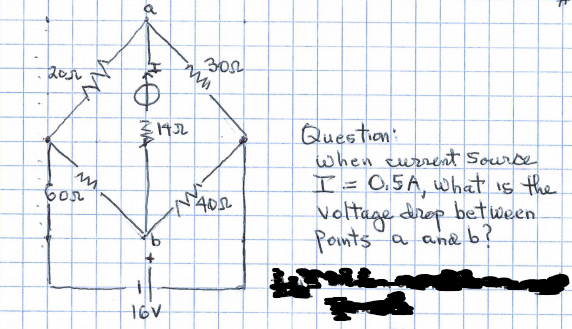 a
20Ω
I
30Ω
14Ω
60Ω
40Ω
b
+
16V
Question:
When current source
I = 0.5A, what is the
voltage drop between
points a and b?